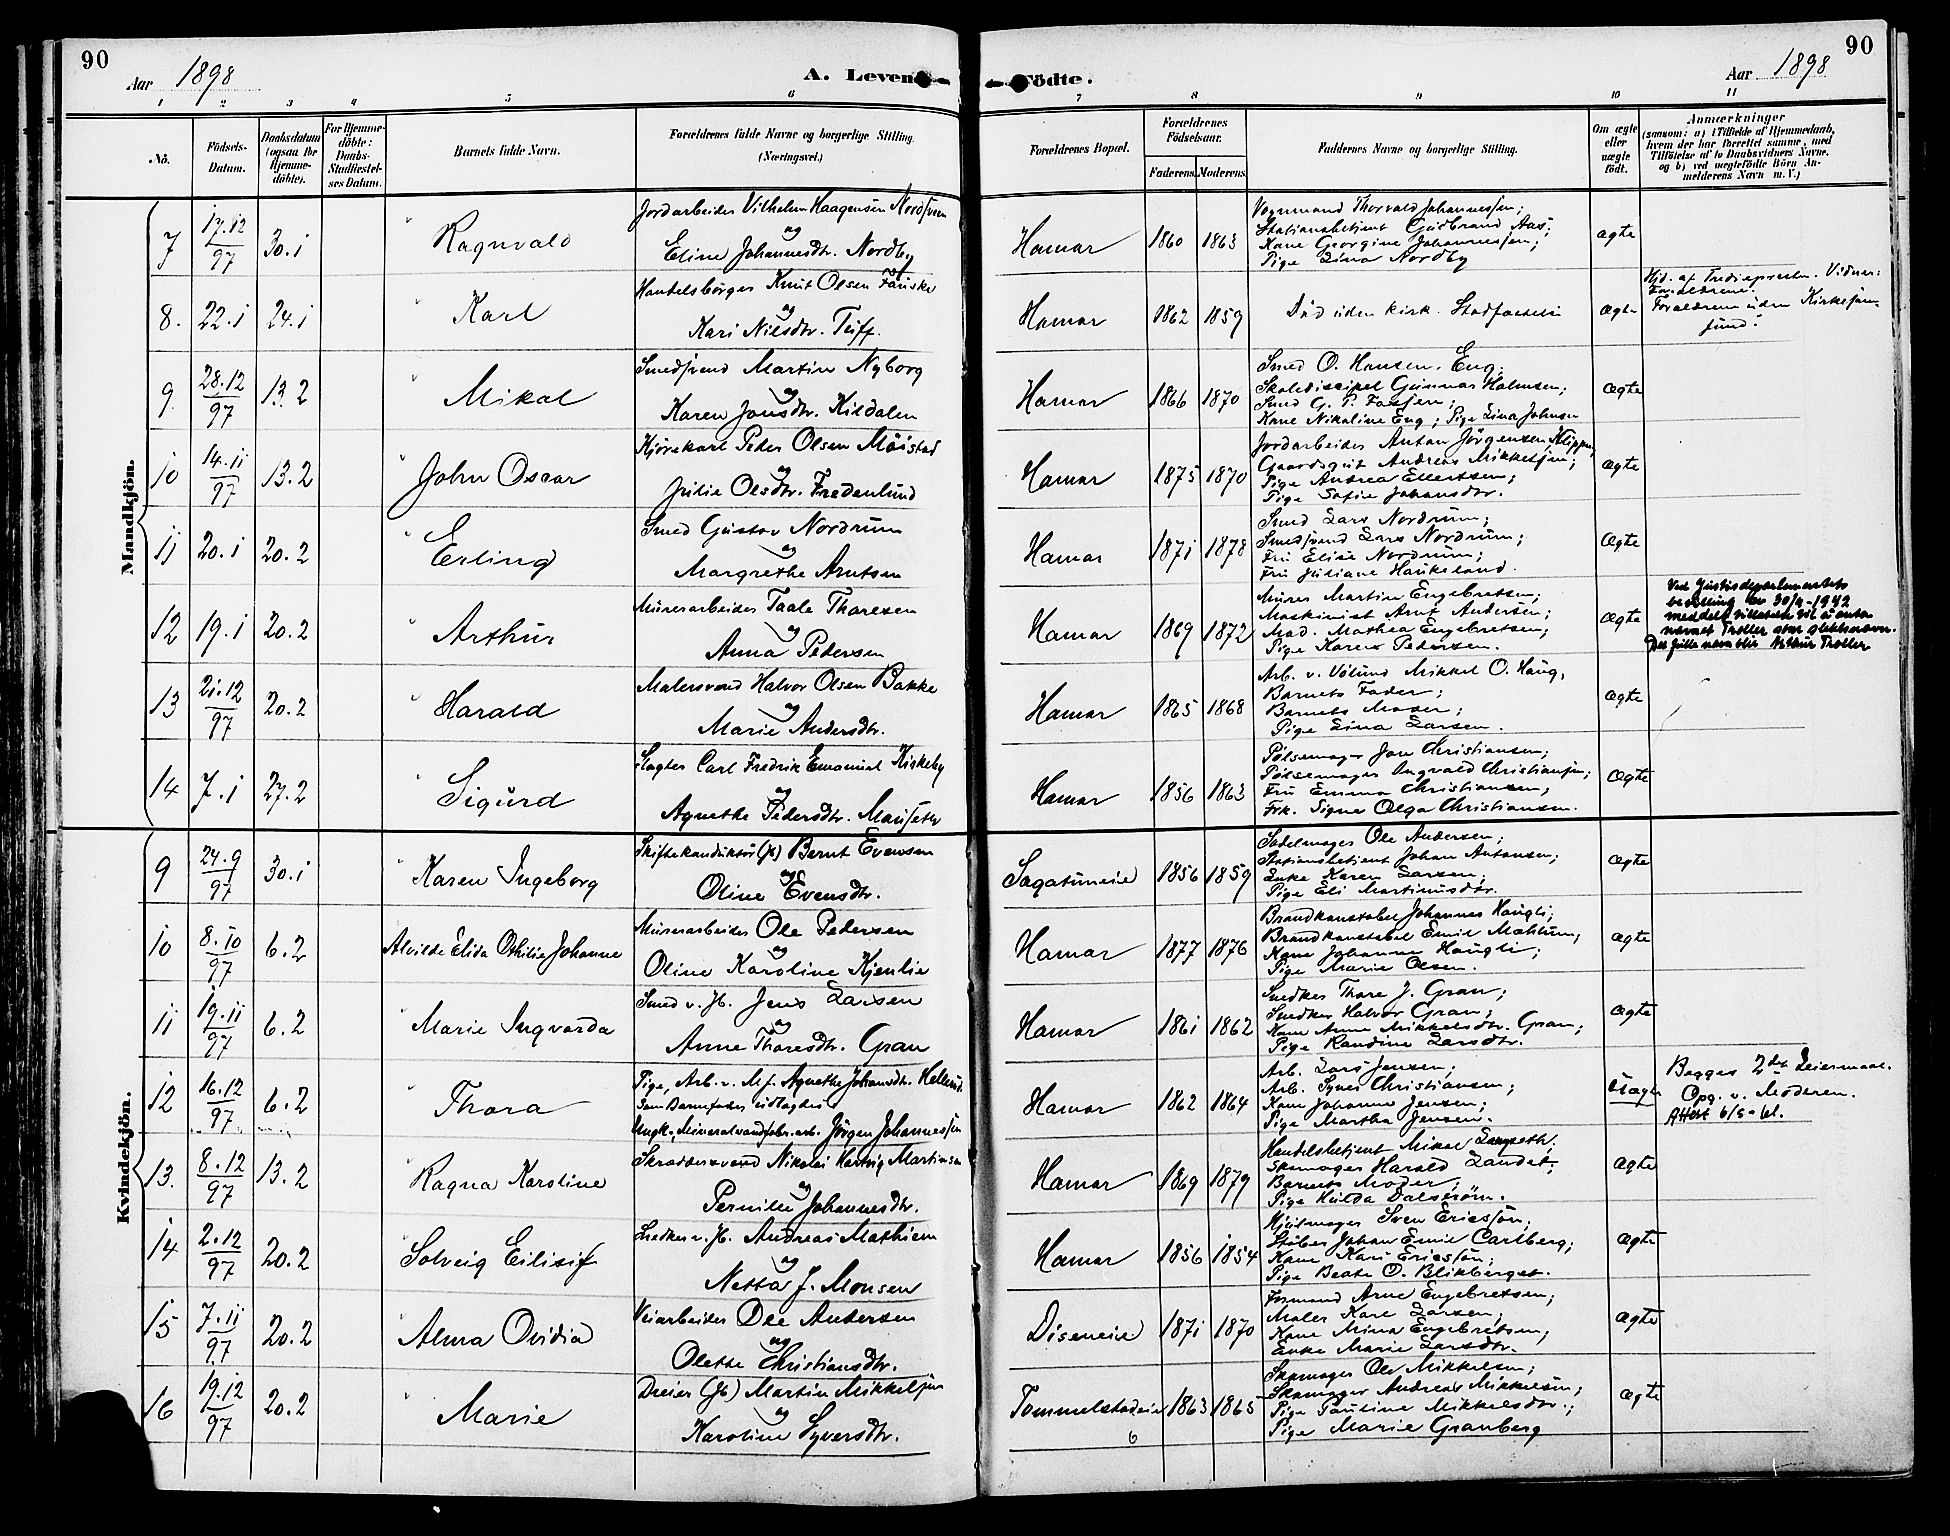 90
Aar 1898
A. Levende
Födte.
Aar 1898
90
1 2 3 4 5 6 7 8 9 10 11
No.
Födsels-Datum.
Daabsdatum (ogsaa for Hjemme-döbte).
For Hjemme-döbte: Daabs-Stadfæstel-ses Datum.
Barnets fulde Navn.
Forældrenes fulde Navne og borgerlige Stilling. (Næringsvei.)
Forældrenes Bopæl.
Forældrenes Födselsaar.
Faderens. Moderens.
Faddernes Navne og borgerlige Stilling.
Om ægte eller uægte födt.
Anmærkninger
(saasom: a) i Tilfælde af Hjemmedaab, hvem der har forrettet samme, med Tilföielse af to Daabsvidners Navne, og b) ved uægtefödte Börn An-melderens Navn m. V.)
Mandkjön.
7 17.12/97 30.1 Ragnvald
Jordarbeider Vilhelm Haagensen Nordsveen
og
Eline Johannesdtr. Nordby
Hamar 1860 1863
Vognmand Thorvald Johannessen;
Stationsbetjent Gudbrand Aas;
Kone Georgine Johannessen;
Pige Lina Nordby
ægte
8. 22.1 24.1 Karl
Handelsborger Knut Olsen Fauske
og
Kari Nilsdtr. Tuff.
Hamar 1862 1859
Död uden kirk. Stadfæstelse
ægte
Hjd. af Frelsepresten. Vidner:
Forældrene.
Forældrene uden Kirkesam-
fund.
9. 28.12/97 13.2 Mikal
Smedsvend Martin Nyborg
og
Karen Jonsdtr. Kildalen
Hamar 1866 1870
Smed O. Hansen. Eng;
Skoledicipel Gunnar Halmsen;
Smed G. P. Fossen;
Kone Nikoline Eng; Pige Lina Johnsen
ægte
10 14.11/97 13.2 John Oscar
Kjörekarl Peder Olsen Möistad
og
Julie Olsdtr. Fredenlund
Hamar 1875 1870
Jordarbeider Anton Jörgensen Klippen,
Gaardsgut Andreas Mikkelsen;
Pige Andrea Ellertsen;
Pige Sofie Johansdtr.
ægte
11 20.1 20.2 Erling
Smed Gustav Nordrum
og
Margrethe Arntsen
Hamar 1871 1878
Smed Lars Nordrum;
Smedsvend Lars Nordrum;
Fru Elise Nordrum;
Fru Juliane Haukeland.
ægte
12 19.1 20.2 Arthur
Murerarbeider Taale Thoresen
og
Anna Pedersen
Hamar 1869 1872
Murer Martin Engebretsen;
Maskinist Arnt Andersen;
Mad. Mathea Engebretsen;
Pige Karen Pedersen.
ægte
Ved Justisdepartementets
bevilling av 30/4-1942
meddelt tillatelse til å anta
navnet Troller som slektsnavn.
Det fulle navn blir Arthur Troller
13 21.12/97 20.2 Harald
Malersvend Halvor Olsen Bakke
og
Marie Andersdtr.
Hamar 1865 1868
Arb. v. Völund Mikkel O. Haug,
Barnets Fader;
Barnets Moder;
Pige Lina Larsen.
ægte
14 7.1 27.2 Sigurd
Slagter Carl Fredrik Emanuel Kirkeby
og
Agnethe Pedersdtr. Mauseth
Hamar 1856 1863
Pölsemager Jon Christiansen;
Pölsemager Ingvald Christiansen;
Fru Emma Christiansen;
Frk. Signe Olga Christiansen.
ægte
Kvindekjön.
9 24.9/97 30.1 Karen Ingeborg
Skiftekonduktör (Jb) Bernt Evensen
og
Oline Evensdtr.
Sagatuneie 1856 1859
Sadelmager Ole Andersen;
Stationsbetjent Johan Antonsen;
Enke Karen Larsen;
Pige Eli Martinusdtr.
ægte
10 8.10/97 6.2 Alvilde Elida Othilie Johanne
Murerarbeider Ole Pedersen
og
Oline Karoline Kjenlie
Hamar 1877 1876
Brandkonstabel Johannes Haugli;
Brandkonstabel Emil Mæhlum;
Kone Johanne Haugli;
Pige Marie Olsen.
ægte
11 19.11/97 6.2 Marie Ingvarda
Smed v. Jb. Jens Larsen
og
Anne Thoresdtr. Gran
Hamar 1861 1862
Snedker Thore J. Gran;
Snedker Halvor Gran;
Kone Anne Mikkelsdtr. Gran;
Pige Randine Larsdtr.
ægte
12 16.12/97 6.2 Thora
Pige, Arb. v. M.f. Agnethe Johansdtr.
Som Barnefader udlagdes
Ungk., Mineralvandfabr.arb. Jörgen Johannessen
Hamar 1862 1864
Arb. Lars Jensen;
Arb. Syver Christiansen;
Kone Johanne Jensen;
Pige Martha Jensen.
Uægte
Begges 2det Leiermaal.
Opg. v. Moderen.
Attest 6/5-61.
13. 8.12/97 13.2 Ragna Karoline
Skrædersvend Nikolai Hartvig Martinsen
og
Pernille Johannesdtr.
Hamar 1869 1879
Handelsbetjent Mikal Langseth;
Skomager Harald Landet;
Barnets Moder;
Pige Hulda Dalström.
ægte
14 2.12/97 20.2 Solveig Eilisif
Snedker v. Jb. Andreas Mathiesen
og
Netta J. Monsen
Hamar 1856 1854
Hjulmager Sven Ericsson;
Stöber Johan Emil Carlberg;
Kone Kari Ericsson;
Pige Beate O. Blikberget.
ægte
15 7.11/97 20.2 Alma Ovidia
Veiarbeider Ole Andersen
og
Olette Christiansdtr.
Diseneie 1871 1870
Formand Arne Engebretsen;
Maler Karl Larsen;
Kone Mina Engebretsen;
Enke Marie Larsdtr.
ægte
16 19.12/97 20.2 Marie
Dreier (Jb) Martin Mikkelsen
og
Karoline Syversdtr.
Tommelstadeie 1863 1865
Skomager Ole Mikkelsen;
Skomager Andreas Mikkelsen;
Pige Pauline Mikkelsdtr.;
Pige Marie Granberg
ægte